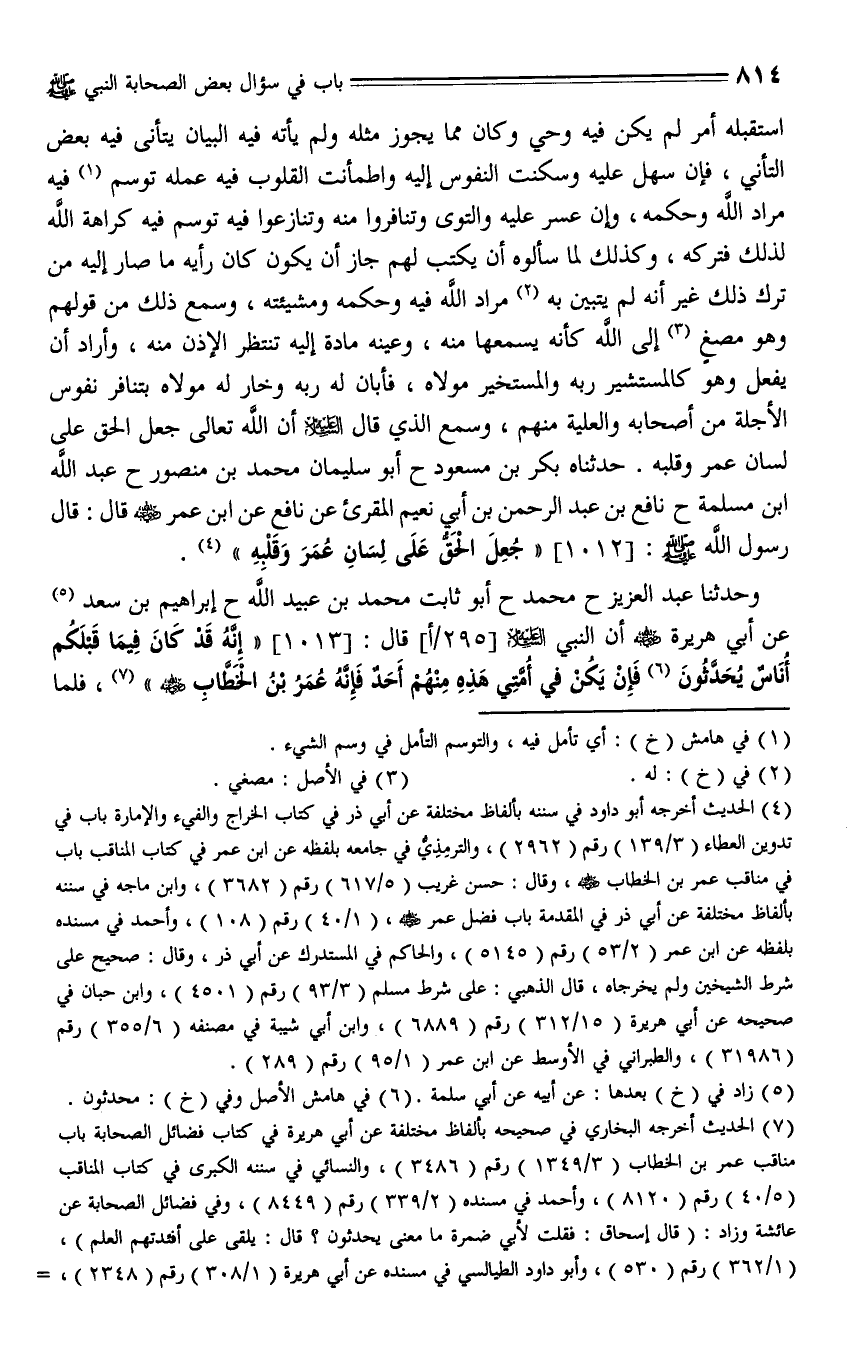 ٨١٤ باب في سؤال بعض الصحابة النبي ﷺ
استقبله أمر لم يكن فيه وحي وكان مما يجوز مثله ولم يأته فيه البيان يتأنى فيه بعض
التأني ، فإن سهل عليه وسكنت النفوس إليه واطمأنت القلوب فيه عمله توسم (١) فيه
مراد اللَّه وحكمه ، وإن عسر عليه والتوى وتنافروا منه وتنازعوا فيه توسم فيه كراهة اللَّه
لذلك فتركه ، وكذلك لما سألوه أن يكتب لهم جاز أن يكون كان رأيه ما صار إليه من
ترك ذلك غير أنه لم يتبين به (٢) مراد اللَّه فيه وحكمه ومشيئته ، وسمع ذلك من قولهم
وهو مصغٍ (٣) إلى اللَّه كأنه يسمعها منه ، وعينه مادة إليه تنتظر الإذن منه ، وأراد أن
يفعل وهو كالمستشير ربه والمستخير مولاه ، فأبان له ربه وخار له مولاه بتنافر نفوس
الأجلة من أصحابه والعلية منهم ، وسمع الذي قال الطَّيِّبُ أن اللَّه تعالى جعل الحق على
لسان عمر وقلبه . حدثناه بكر بن مسعود ح أبو سليمان محمد بن منصور ح عبد اللَّه
ابن مسلمة ح نافع بن عبد الرحمن بن أبي نعيم المقرئ عن نافع عن ابن عمر ﷺ قال : قال
رسول اللَّه ﷺ : [١٠١٢] « جُعِلَ الْحَقُّ عَلَى لِسَانِ عُمَرَ وَقَلْبِهِ » (٤) .
وحدثنا عبد العزيز ح محمد ح أبو ثابت محمد بن عبيد اللَّه ح إبراهيم بن سعد (٥)
عن أبي هريرة ﷺ أن النبي ﷺ [٢٩٥/أ] قال : [١٠١٣] « إِنَّهُ قَدْ كَانَ فِيمَا قَبْلَكُم
أُنَاسٌ يُحَدَّثُونَ (٦) فَإِنْ يَكُنْ في أُمَّتِي هَذِهِ مِنْهُمْ أَحَدٌ فَإِنَّهُ عُمَرُ بْنُ الْخَطَّابِ ﷺ » (٧) ، فلما
(١) في هامش ( خ ) : أي تأمل فيه ، والتوسم التأمل في وسم الشيء .
(٢) في ( خ ) : له . (٣) في الأصل : مصغي .
(٤) الحديث أخرجه أبو داود في سننه بألفاظ مختلفة عن أبي ذر في كتاب الخراج والفيء والإمارة باب في
تدوين العطاء ( ١٣٩/٣ ) رقم ( ٢٩٦٢ ) ، والترمِذِيُّ في جامعه بلفظه عن ابن عمر في كتاب المناقب باب
في مناقب عمر بن الخطاب ﷺ ، وقال : حسن غريب ( ٦١٧/٥ ) رقم ( ٣٦٨٢ ) ، وابن ماجه في سننه
بألفاظ مختلفة عن أبي ذر في المقدمة باب فضل عمر ﷺ ، ( ٤٠/١ ) رقم ( ١٠٨ ) ، وأحمد في مسنده
بلفظه عن ابن عمر ( ٥٣/٢ ) رقم ( ٥١٤٥ ) ، والحاكم في المستدرك عن أبي ذر ، وقال : صحيح على
شرط الشيخين ولم يخرجاه ، قال الذهبي : على شرط مسلم ( ٩٣/٣ ) رقم ( ٤٥٠١ ) ، وابن حبان في
صحيحه عن أبي هريرة ( ٣١٢/١٥ ) رقم ( ٦٨٨٩ ) ، وابن أبي شيبة في مصنفه ( ٣٥٥/٦ ) رقم
( ٣١٩٨٦ ) ، والطبراني في الأوسط عن ابن عمر ( ٩٥/١ ) رقم ( ٢٨٩ ) .
(٥) زاد في ( خ ) بعدها : عن أبيه عن أبي سلمة . (٦) في هامش الأصل وفي ( خ ) : محدثون .
(٧) الحديث أخرجه البخاري في صحيحه بألفاظ مختلفة عن أبي هريرة في كتاب فضائل الصحابة باب
مناقب عمر بن الخطاب ( ١٣٤٩/٣ ) رقم ( ٣٤٨٦ ) ، والنسائي في سننه الكبرى في كتاب المناقب
( ٤٠/٥ ) رقم ( ٨١٢٠ ) ، وأحمد في مسنده ( ٣٣٩/٢ ) رقم ( ٨٤٤٩ ) ، وفي فضائل الصحابة عن
عائشة وزاد : ( قال إسحاق : فقلت لأبي ضمرة ما معنى يحدثون ؟ قال : يلقى على أفئدتهم العلم ) ،
( ٣٦٢/١ ) رقم ( ٥٣٠ ) ، وأبو داود الطيالسي في مسنده عن أبي هريرة ( ٣٠٨/١ ) رقم ( ٢٣٤٨ ) ، =